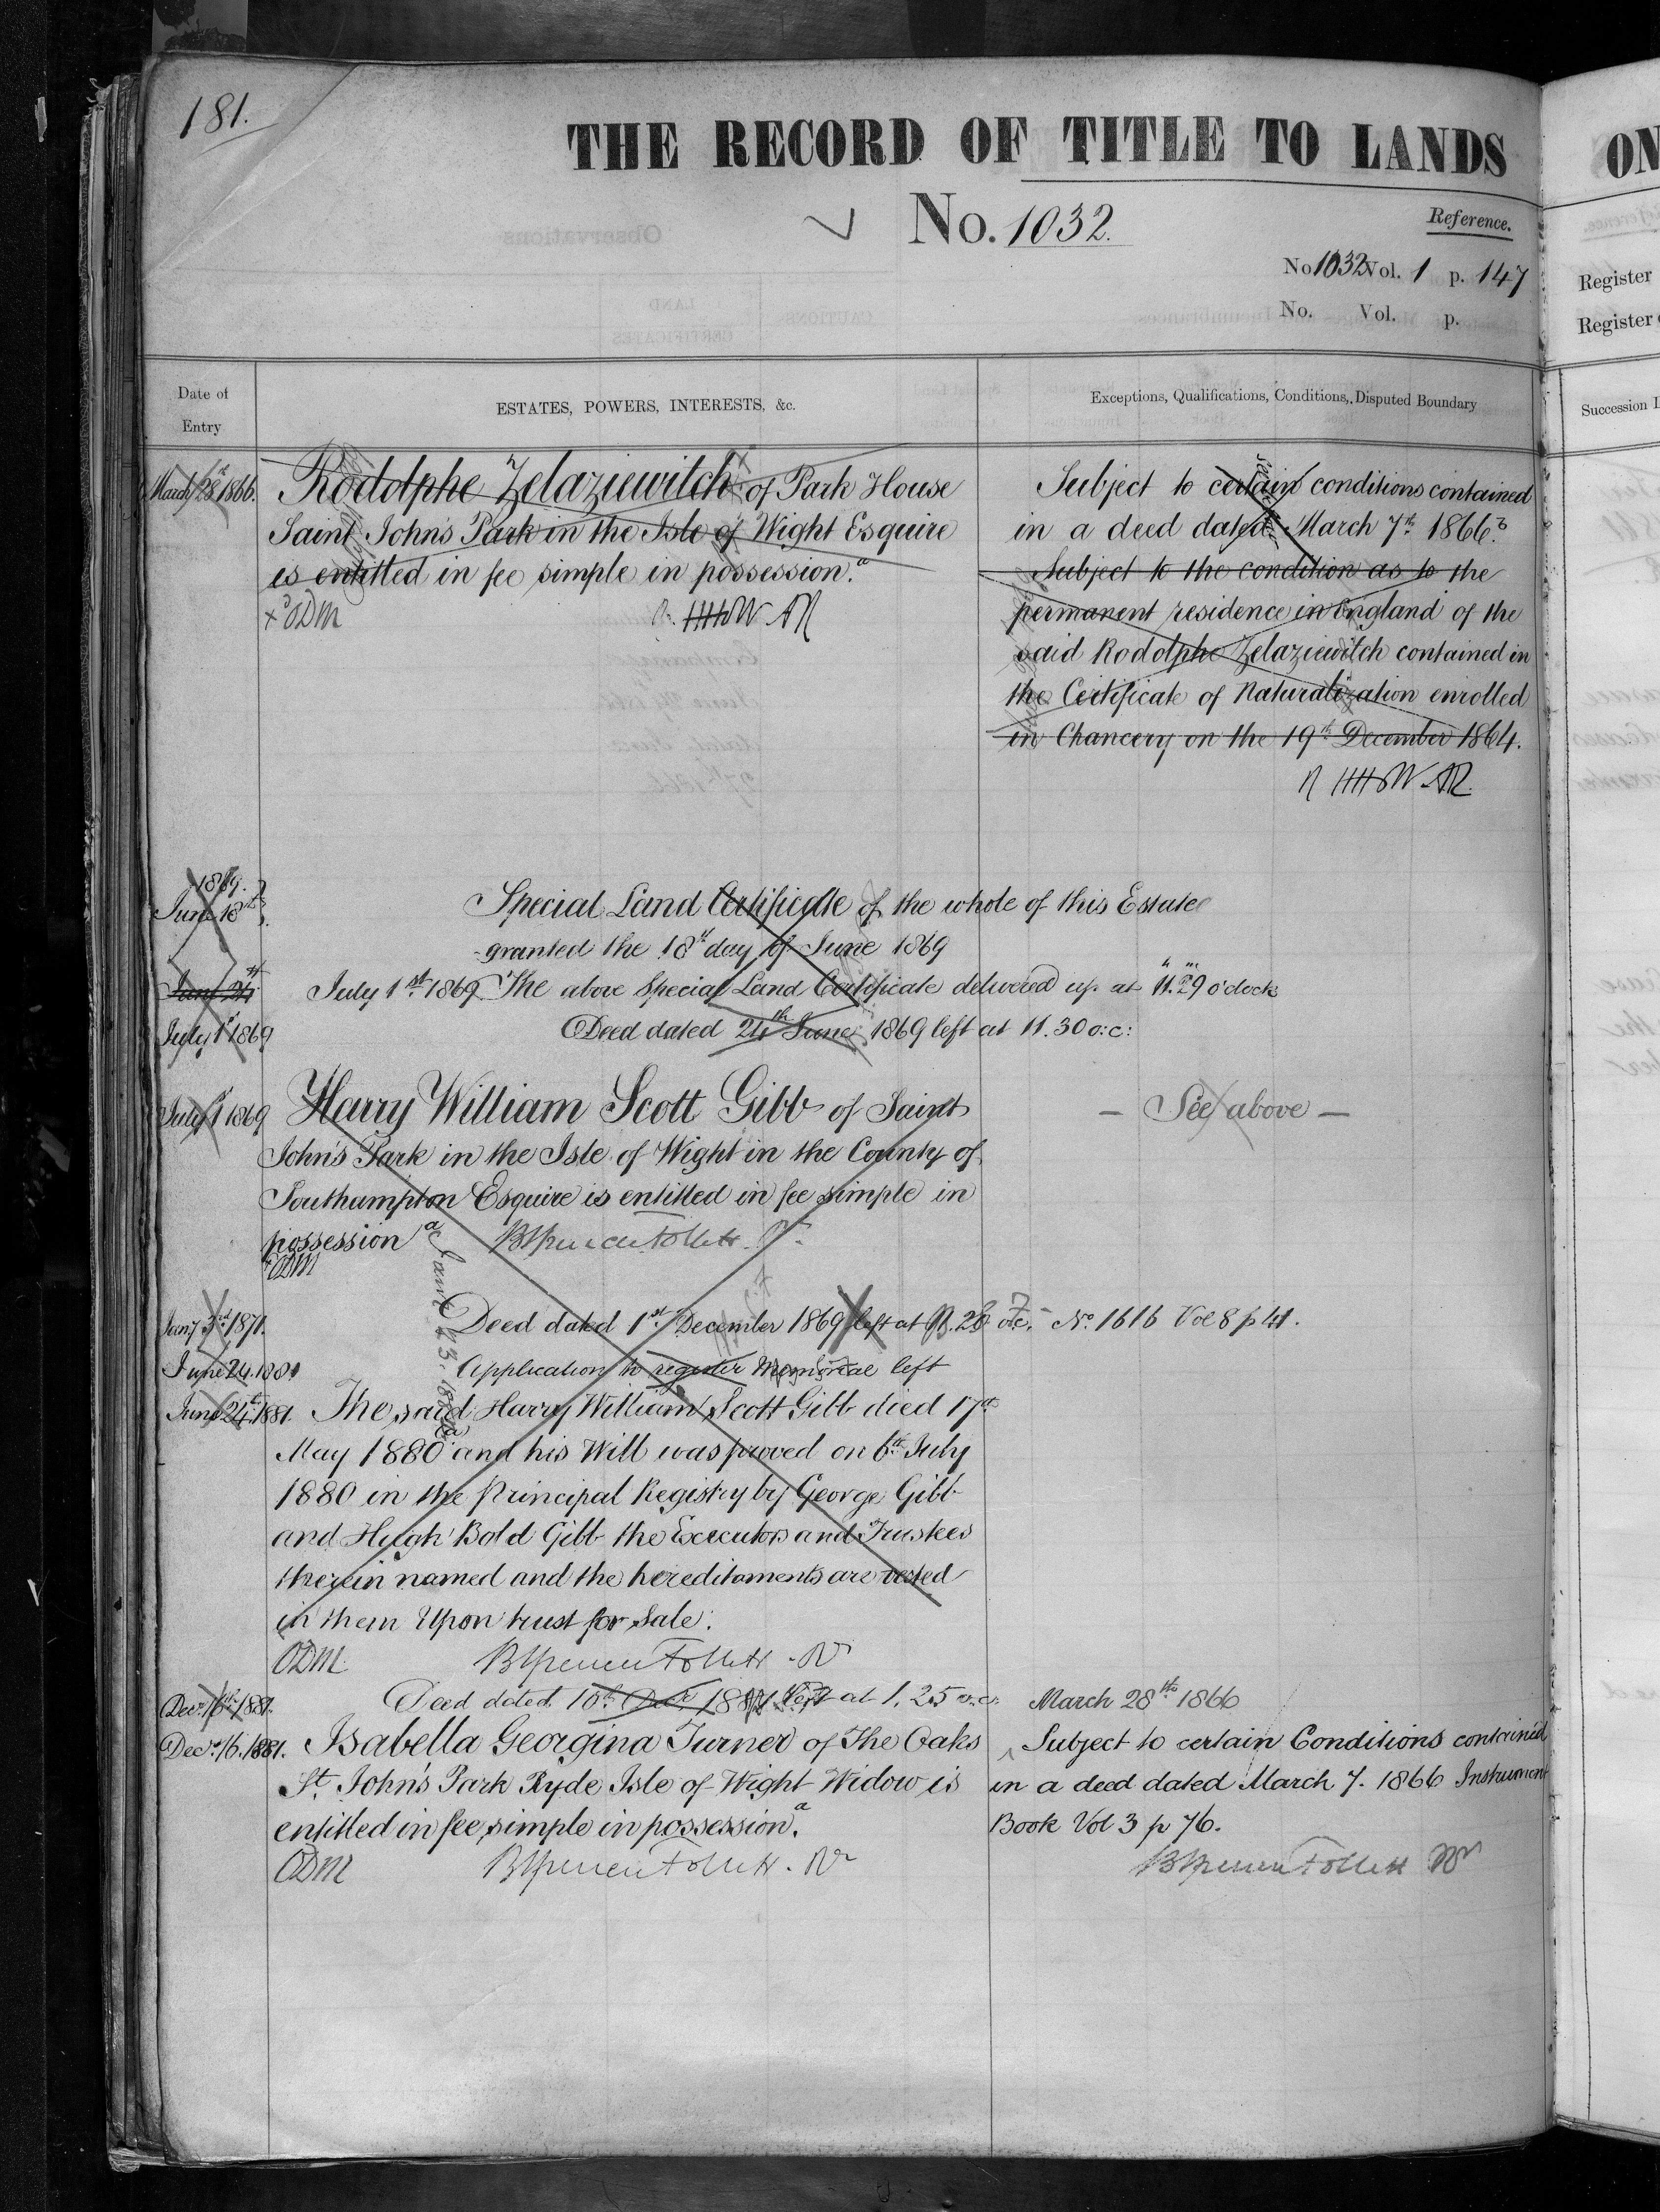 181.
THE RECORD OF TITLE TO LANDS
No. 1032.
Reference.
No 1032 Vol. 1 p. 147
No. Vol. p.
Date of Entry
ESTATES, POWERS, INTERESTS, &c.
Exceptions, Qualifications, Conditions, Disputed Boundary
March 28th 1866.
Rodolphe Zelaziewitch of Park House
Saint John's Park in the Isle of Wight Esquire
is entitled in fee simple in possession. a
ODM
Subject to certain conditions contained
in a deed dated March 7th 1866.
Subject to the condition as to the
permanent residence in England of the
said Rodolphe Zelaziewitch contained in
the Certificate of Naturalization enrolled
in Chancery on the 19th December 1864.
1869.
June 18th
Special Land Certificate of the whole of this Estate
granted the 18th day of June 1869
July 1st 1869
July 1st 1869 The above Special Land Certificate delivered up at 11.29 o'clock
Deed dated 24th June 1869 left at 11.30 o:c:
July 1st 1869
Harry William Scott Gibb of Saint
John's Park in the Isle of Wight in the County of
Southampton Esquire is entitled in fee simple in
possession a
ODM
— See above —
1871.
Deed dated 1st December 1869 left at No. 1616 Vol 8 p 41.
June 24. 1881
Application to register Memorial left
June 24th 1881.
The said Harry William Scott Gibb died 17th
May 1880 and his Will was proved on 6th July
1880 in the Principal Registry by George Gibb
and Hugh Bold Gibb the Executors and Trustees
therein named and the hereditaments are vested
in them Upon trust for Sale.
ODM
Decr. 16th 1881.
Deed dated 10th Decr 1881 left at 1.25 o.c.
March 28th 1866
Decr. 16. 1881.
Isabella Georgina Turner of The Oaks
St. John's Park Ryde Isle of Wight Widow is
entitled in fee simple in possession. a
ODM
Subject to certain Conditions contained
in a deed dated March 7. 1866 Instrument
Book Vol 3 p 76.
ON
Register
Register
Succession